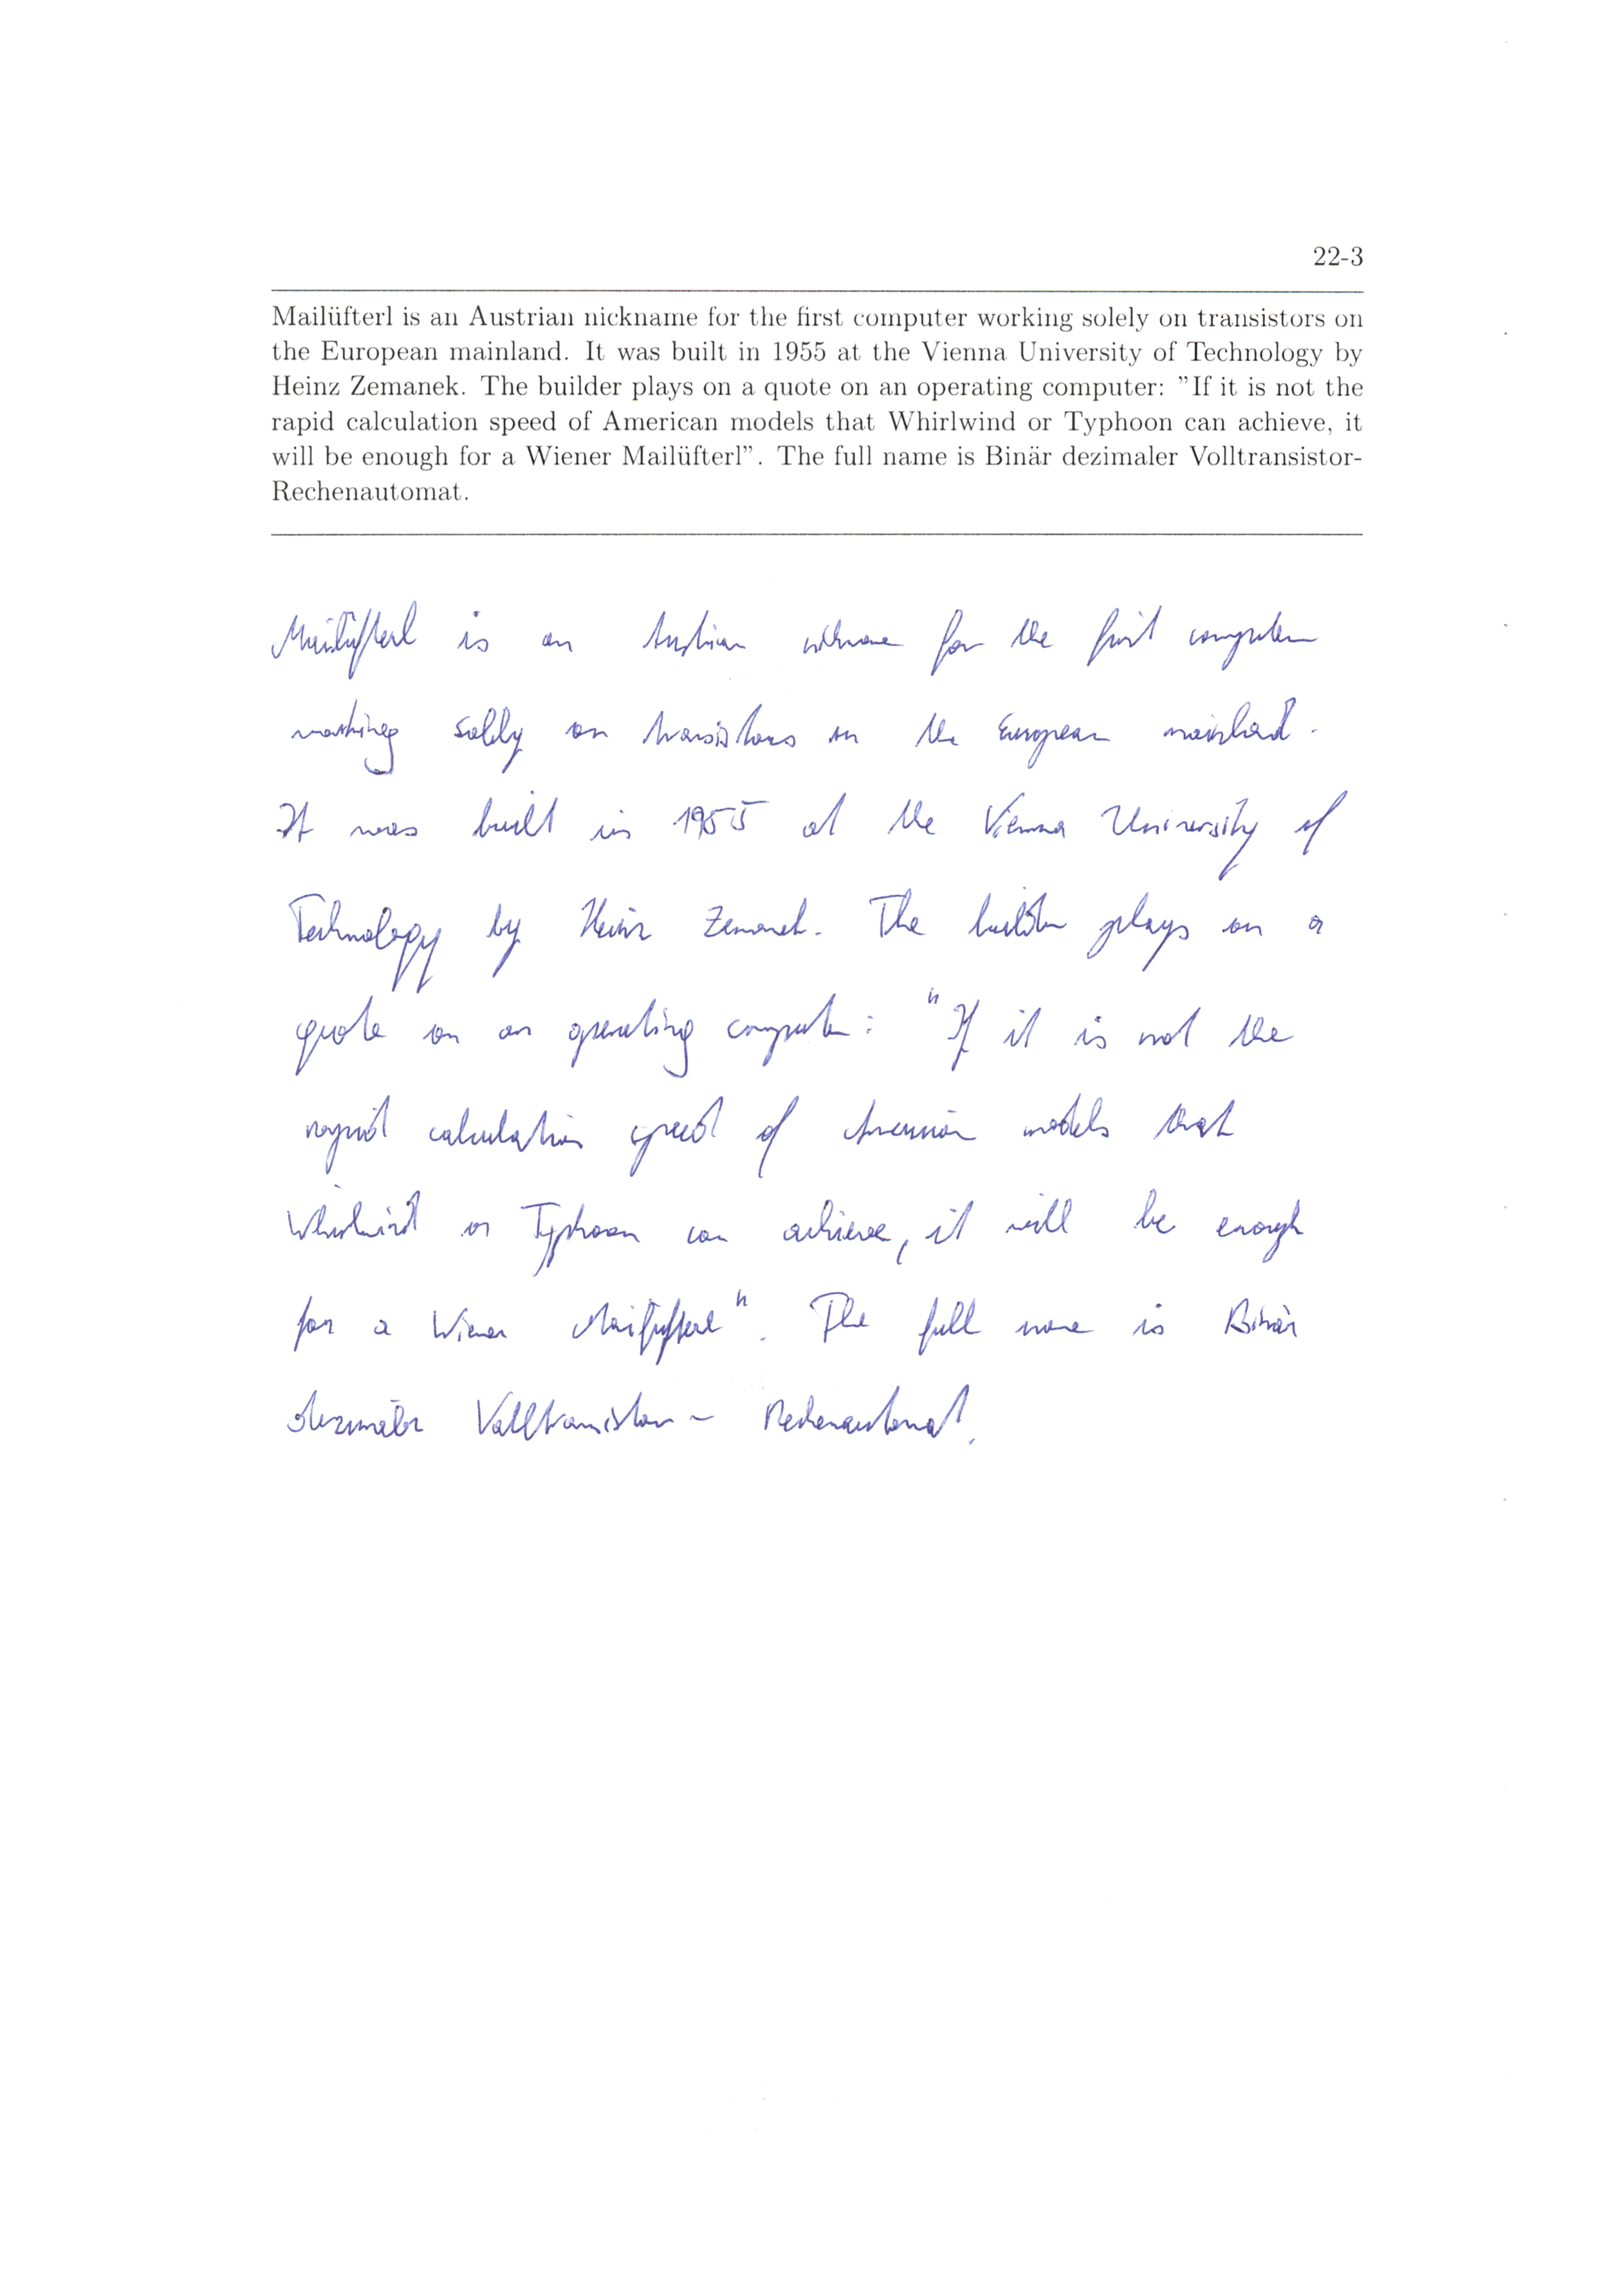 22-3
Mailüfterl is an Austrian nickname for the first computer working solely on transistors on
the European mainland. It was built in 1955 at the Vienna University of Technology by
Heinz Zemanek. The builder plays on a quote on an operating computer: "If it is not the
rapid calculation speed of American models that Whirlwind or Typhoon can achieve, it
will be enough for a Wiener Mailüfterl". The full name is Binär dezimaler Volltransistor-
Rechenautomat.
Mailüfterl is an Austrian nickname for the first computer
working solely on transistors on the European mainland.
It was built in 1955 at the Vienna University of
Technology by Heinz Zemanek. The builder plays on a
quote on an operating computer: "If it is not the
rapid calculation speed of American models that
Whirlwind or Typhoon can achieve, it will be enough
for a Wiener Mailüfterl". The full name is Binär
dezimaler Volltransistor-Rechenautomat.